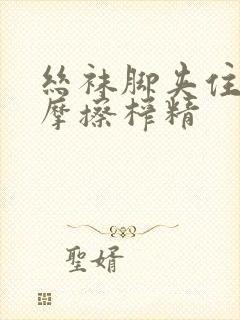 絲袜脚夹住
摩擦榨精
聖婿